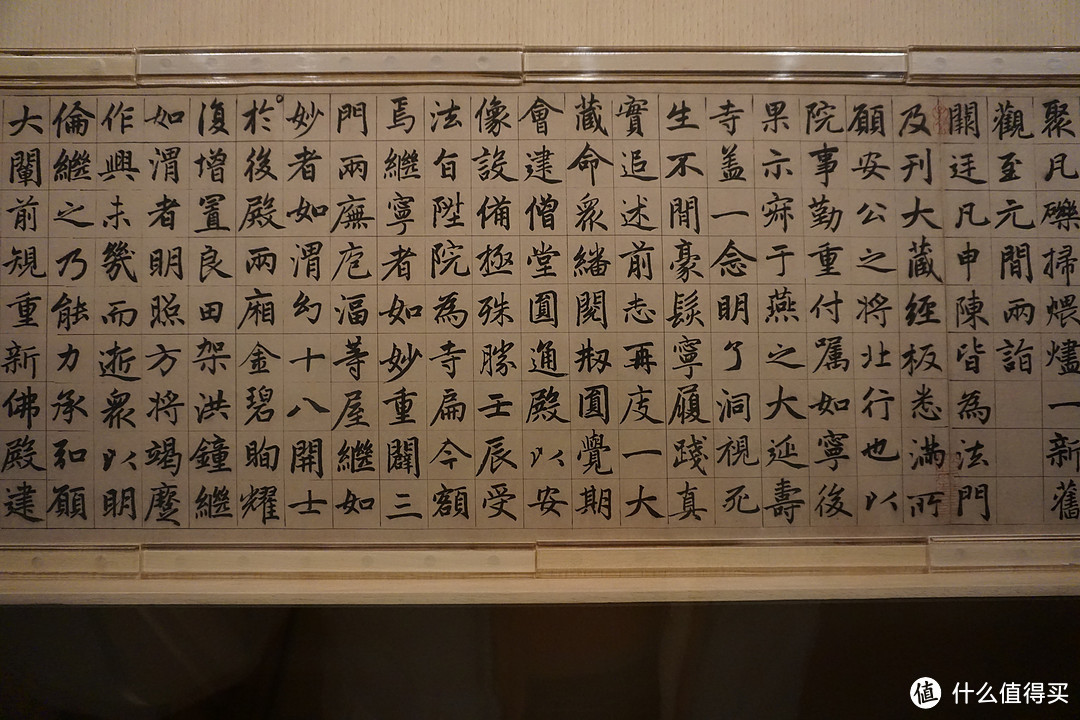 聚凡礫掃煨燼一新舊
觀至元間兩詣
闕廷凡申陳皆為法門
及刊大藏經板悉滿所
願安公之將北行也以
院事勤重付囑如寧後
果示寂于燕之大延壽
寺盖一念明了洞視死
生不間豪髮寧履踐真
實追述前志再庋一大
藏命眾繙閱刱圓覺期
會建僧堂圓通殿以安
像設備極殊勝壬辰受
法旨陞院為寺扁今額
焉繼寧者如妙重闢三
門兩廡庖湢等屋繼如
妙者如渭幻十八開士
於後殿兩廂金碧眴耀
復增置良田架洪鐘繼
如渭者明照方將竭
作興未幾而逝眾以明
倫繼之乃能力承弘願
大闡前規重新佛殿建
值 什么值得买